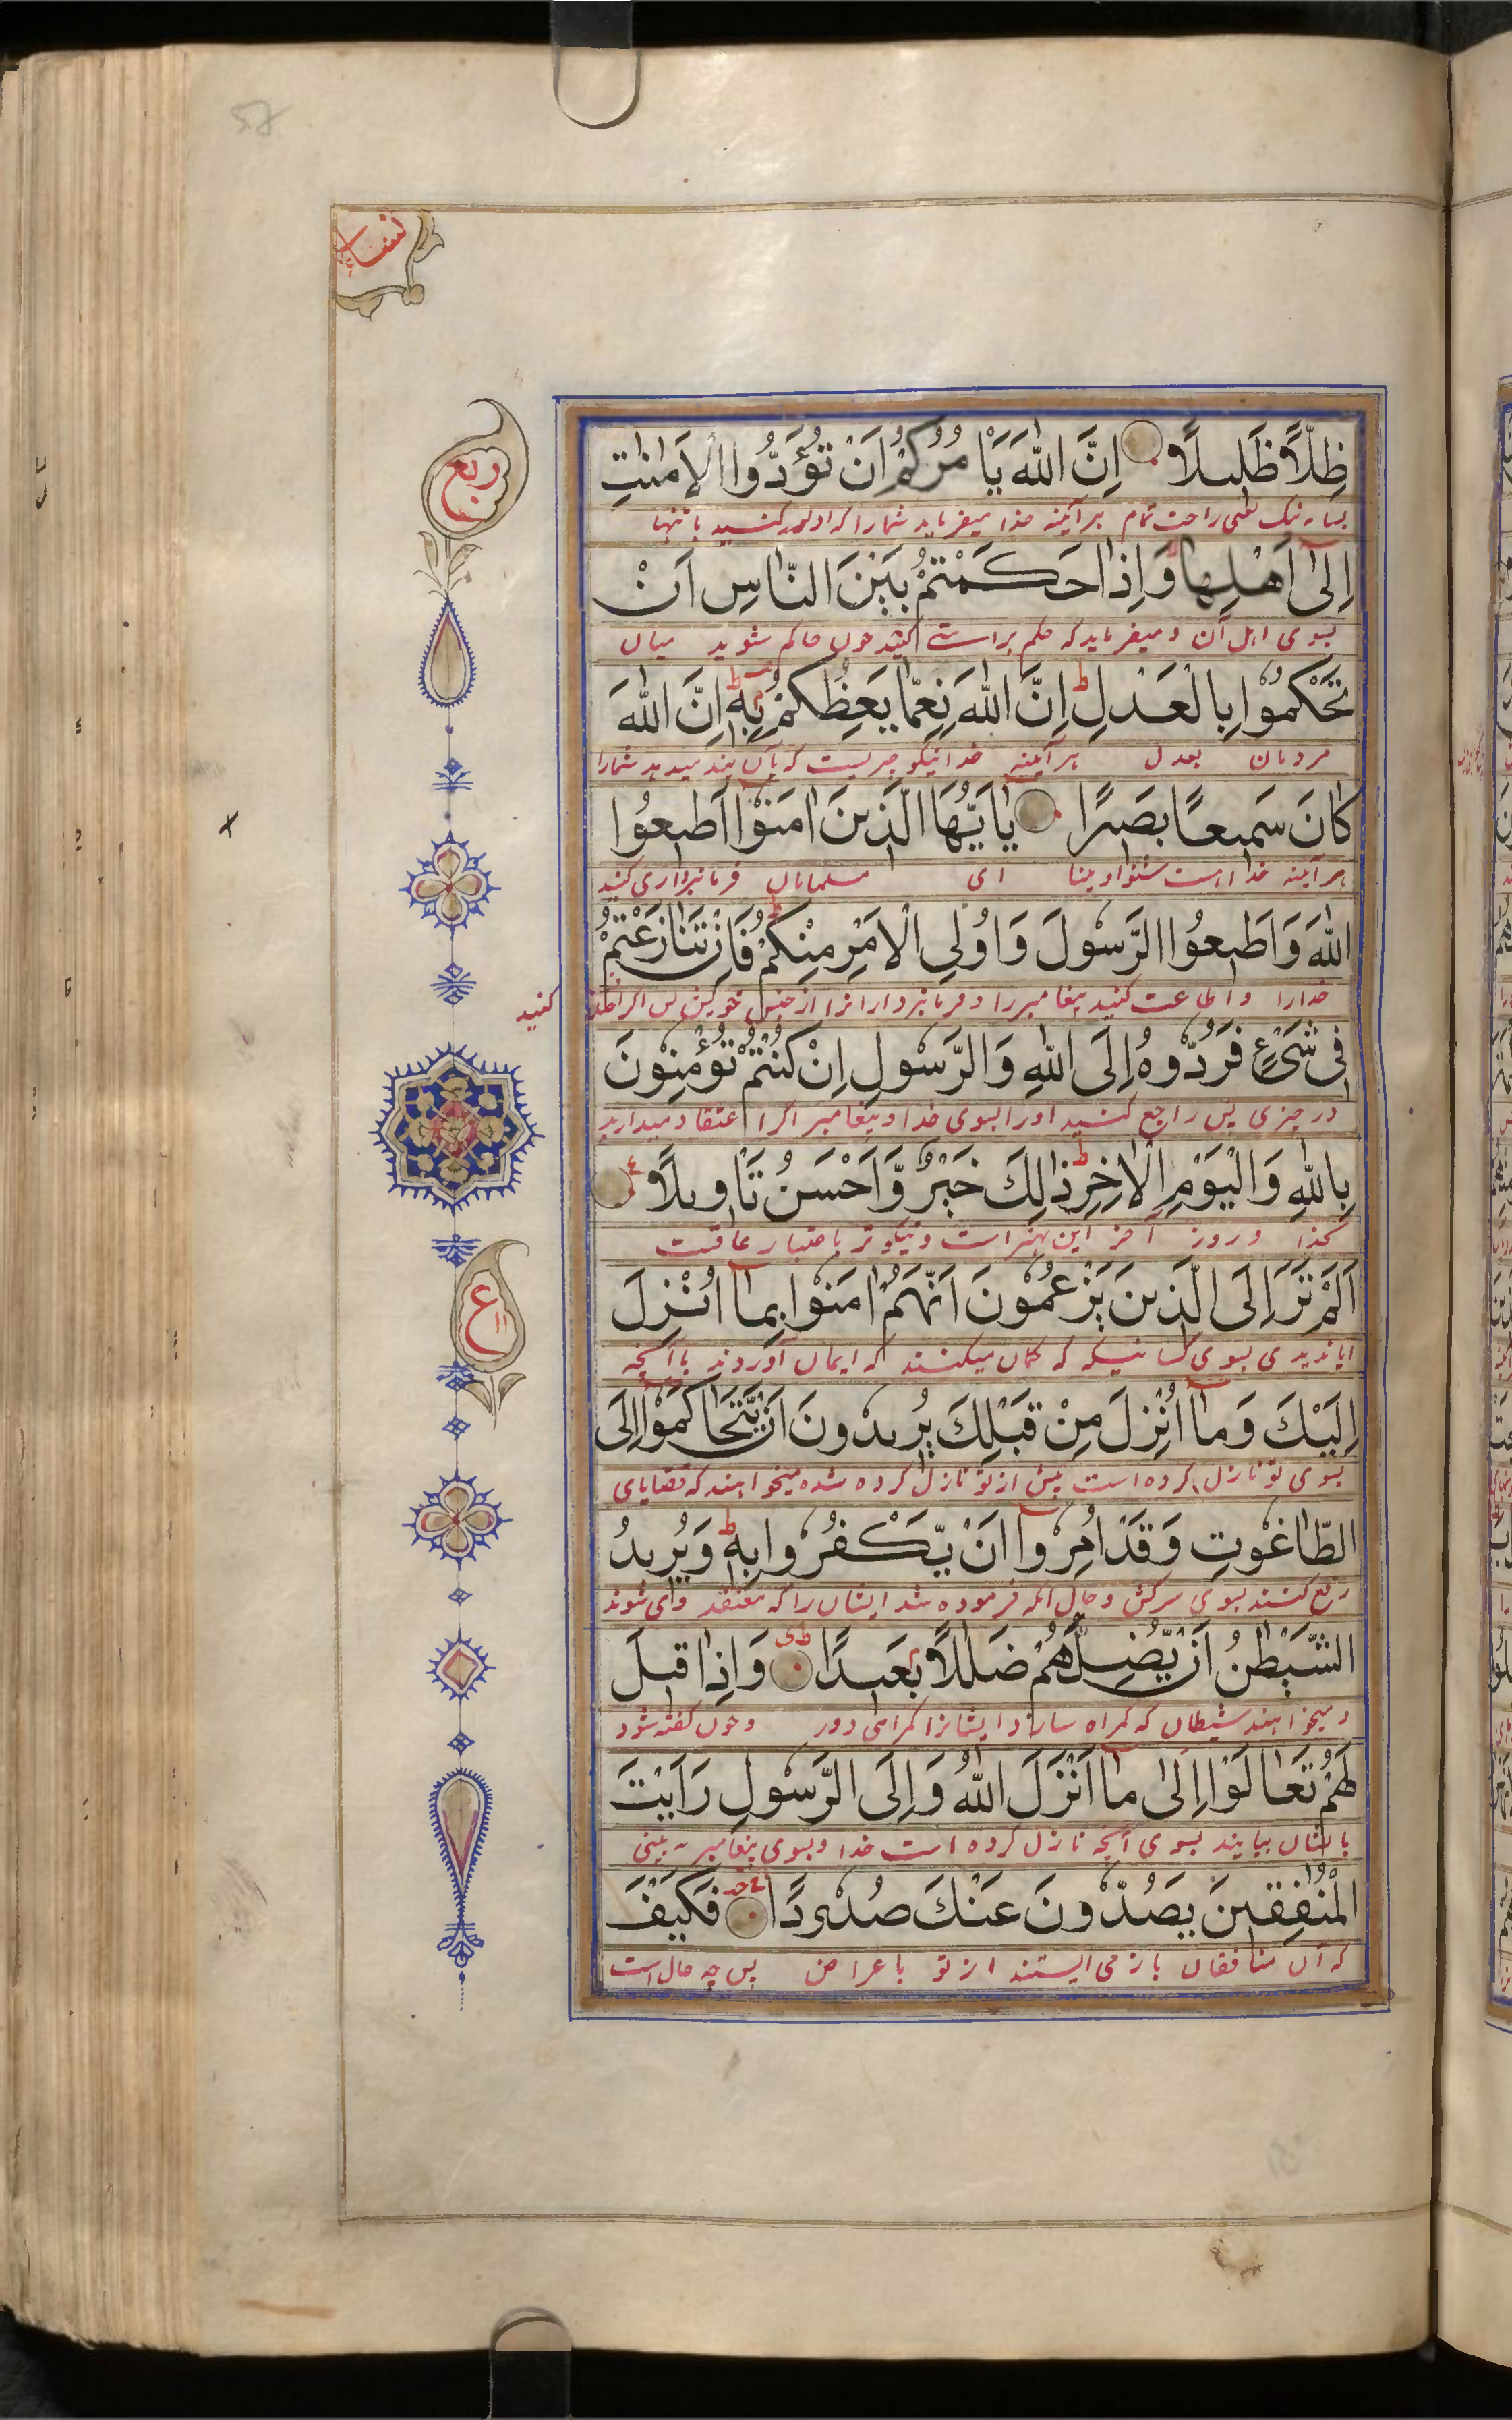 نساء
ربع
ظِلًّا ظَلِيلًا اِنَّ اللّٰهَ يَاْمُرُكُمْ اَنْ تُؤَدُّوا الْاَمٰنٰتِ
راحت تمام هر آئینه خدا میفرماید شما را که ادا کنید
اِلٰى اَهْلِهَا وَاِذَا حَكَمْتُمْ بَيْنَ النَّاسِ اَنْ
بسوی اهل آن و میفرماید که حکم براستی کنید چون حاکم شوید میان
تَحْكُمُوا بِالْعَدْلِ ط اِنَّ اللّٰهَ نِعِمَّا يَعِظُكُمْ بِهٖ ط اِنَّ اللّٰهَ
مردمان بعدل هر آئینه خدا نیکو چیزیست که بآن پند میدهد شمارا
كَانَ سَمِيعًا بَصِيرًا يٰٓاَيُّهَا الَّذِينَ اٰمَنُوٓا اَطِيعُوا
هر آئینه خدا است شنوا و بینا ای مسلمانان فرمانبرداری کنید
اللّٰهَ وَاَطِيعُوا الرَّسُولَ وَاُولِي الْاَمْرِ مِنْكُمْ فَاِنْ تَنَازَعْتُمْ
خدارا و اطاعت کنید پیغامبر را و فرمانبرداران را از جنس خویش پس اگر
کنید
فِي شَيْءٍ فَرُدُّوهُ اِلَى اللّٰهِ وَالرَّسُولِ اِنْ كُنْتُمْ تُؤْمِنُونَ
در چیزی پس راجع کنید اورا بسوی خدا و پیغامبر اگر اعتقاد میدارید
بِاللّٰهِ وَالْيَوْمِ الْاٰخِرِ ط ذٰلِكَ خَيْرٌ وَّاَحْسَنُ تَاْوِيلًا ع
بخدا و روز آخر این بهتر است و نیکوتر باعتبار عاقبت
اَلَمْ تَرَ اِلَى الَّذِينَ يَزْعُمُونَ اَنَّهُمْ اٰمَنُوا بِمَٓا اُنْزِلَ
ایا ندیدی بسوی کسانیکه که گمان میکنند که ایمان آوردند باآنچه
ع
١١
اِلَيْكَ وَمَٓا اُنْزِلَ مِنْ قَبْلِكَ يُرِيدُونَ اَنْ يَّتَحَاكَمُوٓا اِلَى
بسوی تو نازل کرده است پیش از تو نازل کرده شده میخواهند که قضایای
الطَّاغُوتِ وَقَدْ اُمِرُوٓا اَنْ يَّكْفُرُوا بِهٖ ط وَيُرِيدُ
رفع کنند بسوی سرکش و حال آنکه فرموده شد ایشان را که معتقد وای شوند
الشَّيْطٰنُ اَنْ يُّضِلَّهُمْ ضَلٰلًا بَعِيدًا وَاِذَا قِيلَ
و میخواهند شیطان که گمراه سازد ایشانرا گمراهی دور و چون گفته شود
لَهُمْ تَعَالَوْا اِلٰى مَٓا اَنْزَلَ اللّٰهُ وَاِلَى الرَّسُولِ رَاَيْتَ
باشان بیایند بسوی آنچه نازل کرده است خدا و بسوی پیغامبر به بینی
الْمُنٰفِقِينَ يَصُدُّونَ عَنْكَ صُدُودًا فَكَيْفَ
که آن منافقان باز می ایستند از تو باعراض پس چه حال است